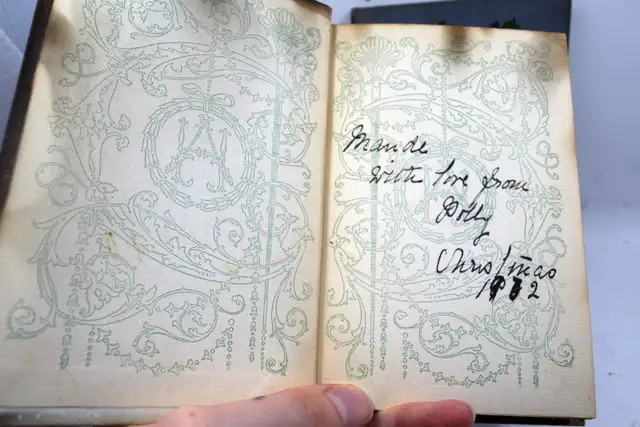 Maude
with love from
Polly
Christmas
1912